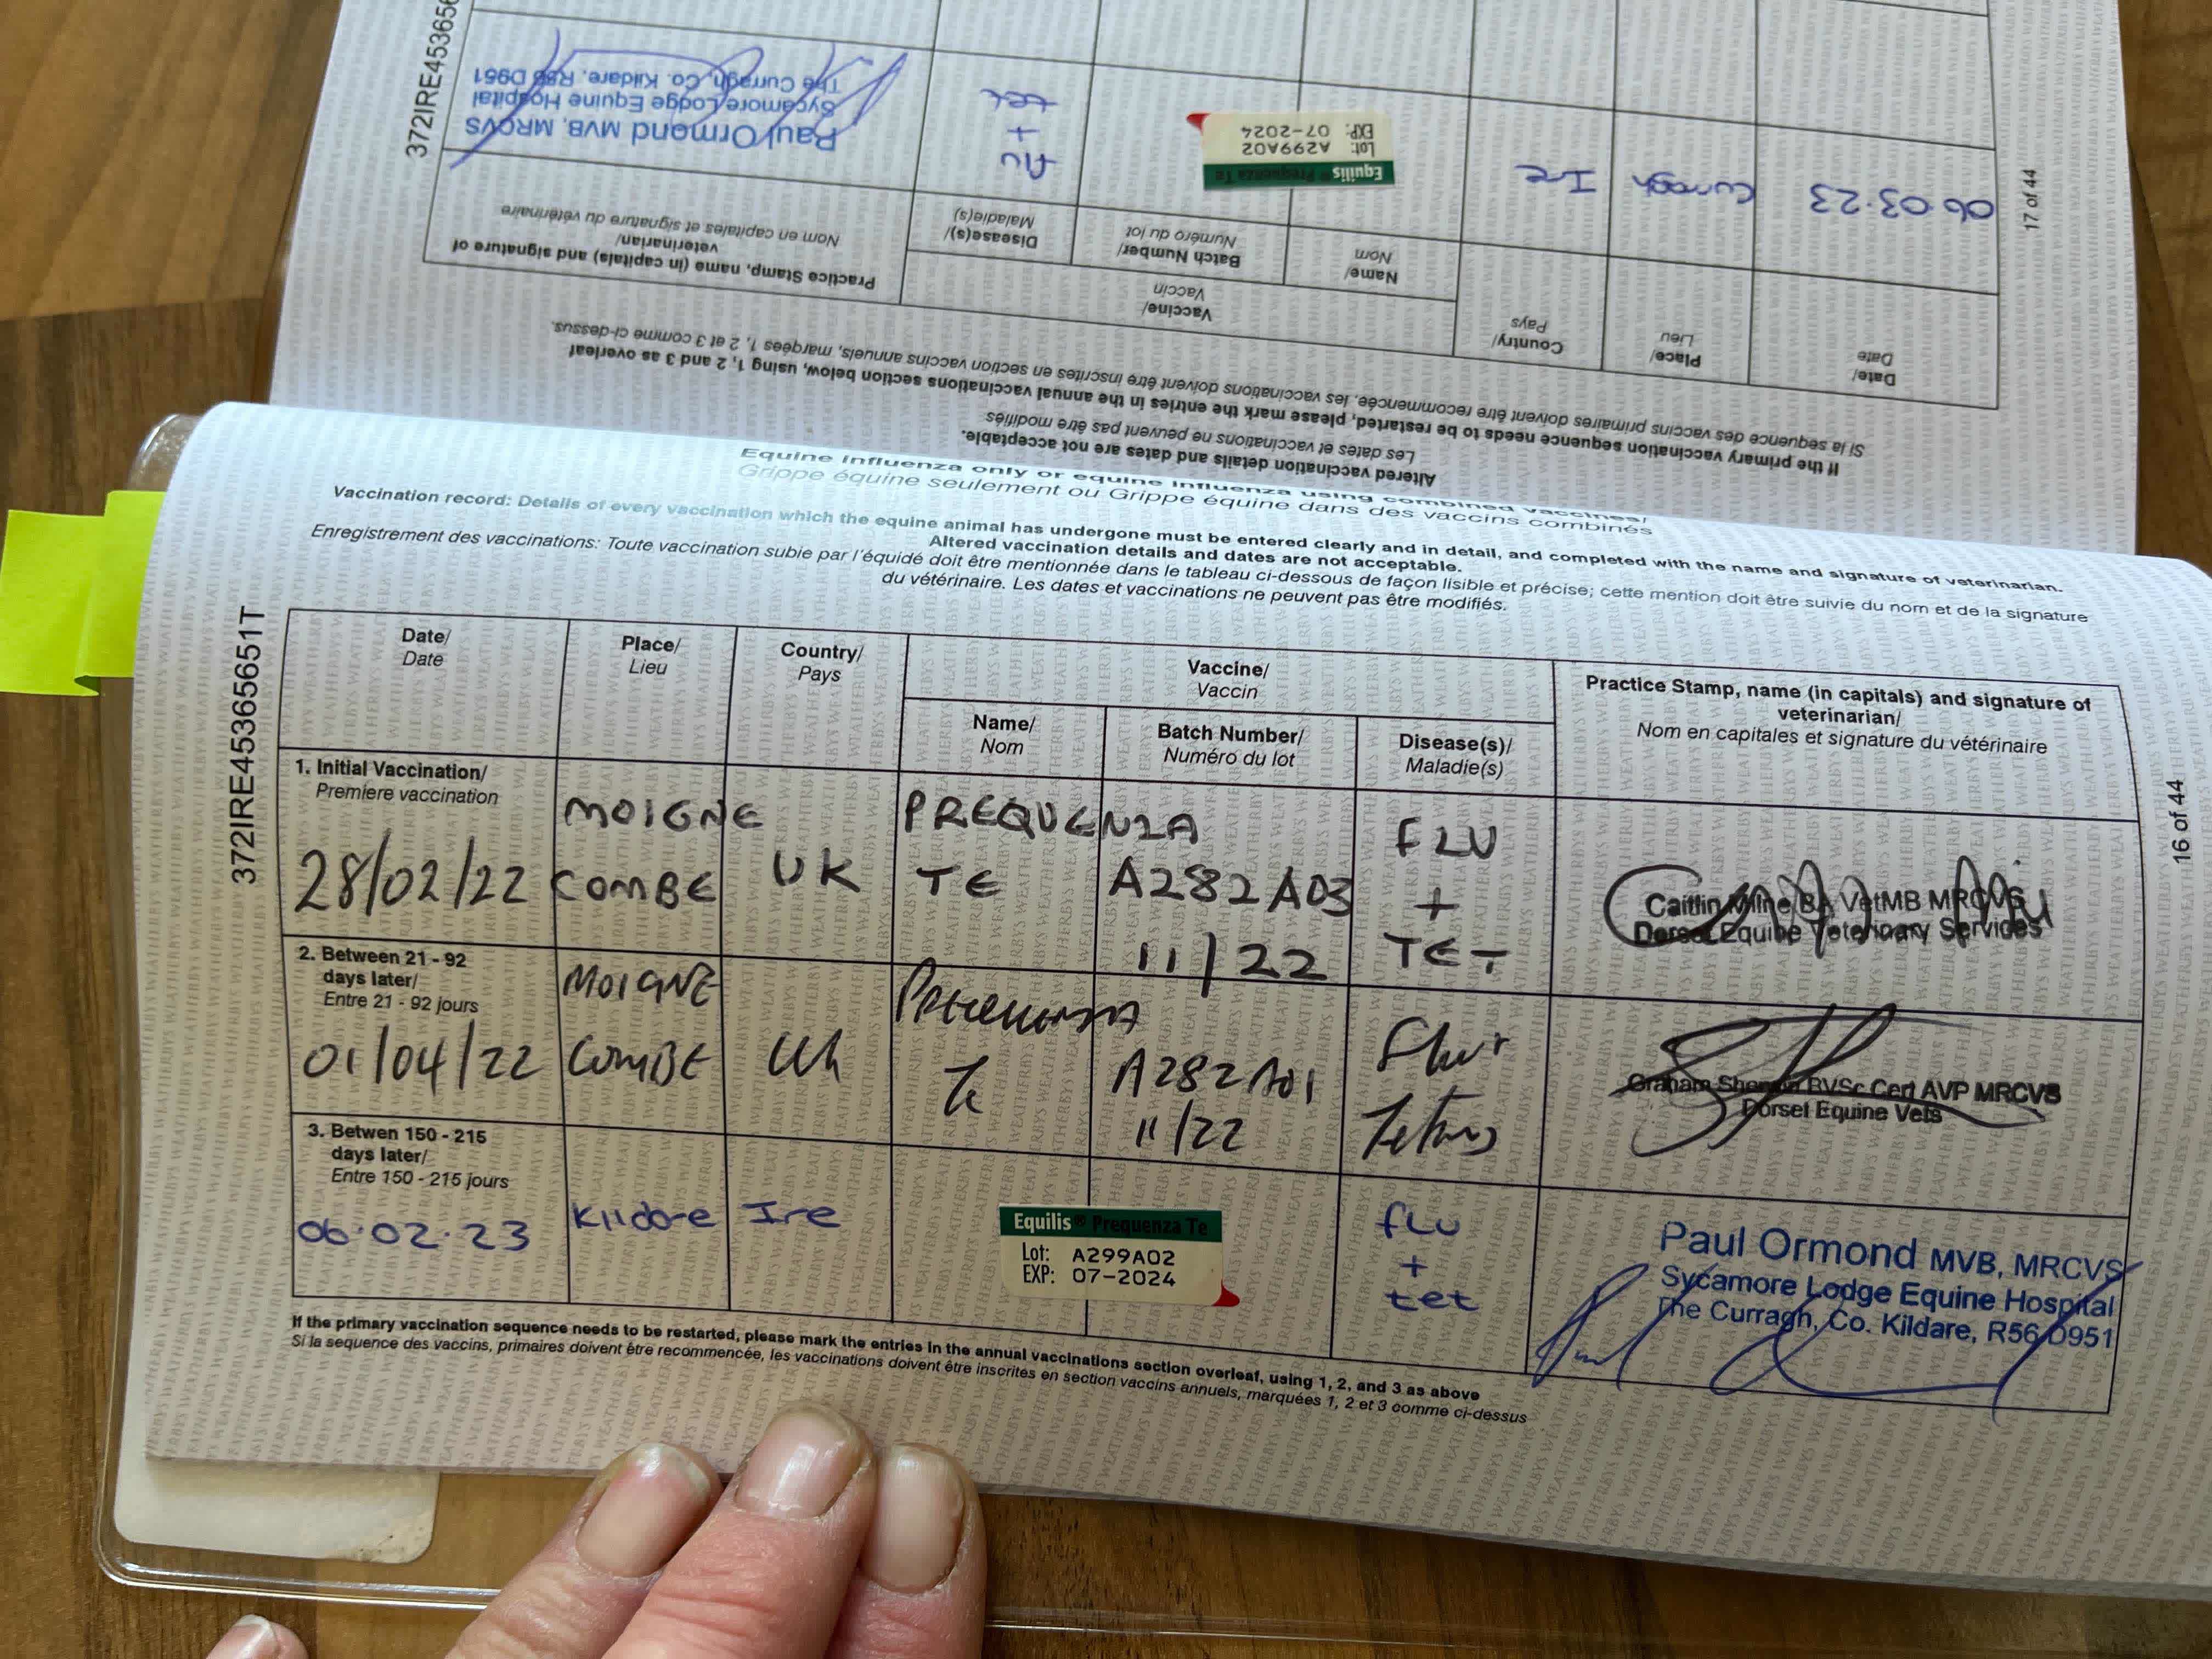 372IRE45365651T
16 of 44
Equine influenza only or equine influenza using combined vaccines/
Grippe équine seulement ou Grippe équine dans des vaccins combinés
Vaccination record: Details of every vaccination which the equine animal has undergone must be entered clearly and in detail, and completed with the name and signature of veterinarian.
Altered vaccination details and dates are not acceptable.
Enregistrement des vaccinations: Toute vaccination subie par l'équidé doit être mentionnée dans le tableau ci-dessous de façon lisible et précise; cette mention doit être suivie du nom et de la signature
du vétérinaire. Les dates et vaccinations ne peuvent pas être modifiés.
Date/
Date
Place/
Lieu
Country/
Pays
Vaccine/
Vaccin
Name/
Nom
Batch Number/
Numéro du lot
Disease(s)/
Maladie(s)
Practice Stamp, name (in capitals) and signature of
veterinarian/
Nom en capitales et signature du vétérinaire
1. Initial Vaccination/
Premiere vaccination
28/02/22
MOIGNE
COMBE
UK
PREQUENZA
TE
A282A03
11/22
FLU
+
TET
Caitlin Milne BA VetMB MRCVS
Dorset Equine Veterinary Services
2. Between 21 - 92
days later/
Entre 21 - 92 jours
01/04/22
MOIGNE
COMBE
Uk
Te
A282A01
11/22
Flu+
Tetanus
Graham BVSc Cert AVP MRCVS
Dorset Equine Vets
3. Betwen 150 - 215
days later/
Entre 150 - 215 jours
06.02.23
Kildare
Ire
Equilis® Prequenza Te
Lot: A299A02
EXP: 07-2024
flu
+
tet
Paul Ormond MVB, MRCVS
Sycamore Lodge Equine Hospital
The Curragh, Co. Kildare, R56 D951
If the primary vaccination sequence needs to be restarted, please mark the entries in the annual vaccinations section overleaf, using 1, 2, and 3 as above
Si la sequence des vaccins, primaires doivent être recommencée, les vaccinations doivent être inscrites en section vaccins annuels, marquées 1, 2 et 3 comme ci-dessus
372IRE453656
17 of 44
Altered vaccination details and dates are not acceptable.
Les dates et vaccinations ne peuvent pas être modifiés
If the primary vaccination sequence needs to be restarted, please mark the entries in the annual vaccinations section below, using 1, 2 and 3 as overleaf
Si la sequence des vaccins primaires doivent être recommencée, les vaccinations doivent être inscrites en section vaccins annuels, marqées 1, 2 et 3 comme ci-dessus.
Date/
Date
Place/
Lieu
Country/
Pays
Vaccine/
Vaccin
Name/
Nom
Batch Number/
Numéro du lot
Disease(s)/
Maladie(s)
Practice Stamp, name (in capitals) and signature of
veterinarian/
Nom en capitales et signature du vétérinaire
06.03.23
Curragh
Ire
Equilis® Prequenza Te
Lot: A299A02
EXP: 07-2024
flu
+
tet
Paul Ormond MVB, MRCVS
Sycamore Lodge Equine Hospital
The Curragh, Co. Kildare, R56 D951